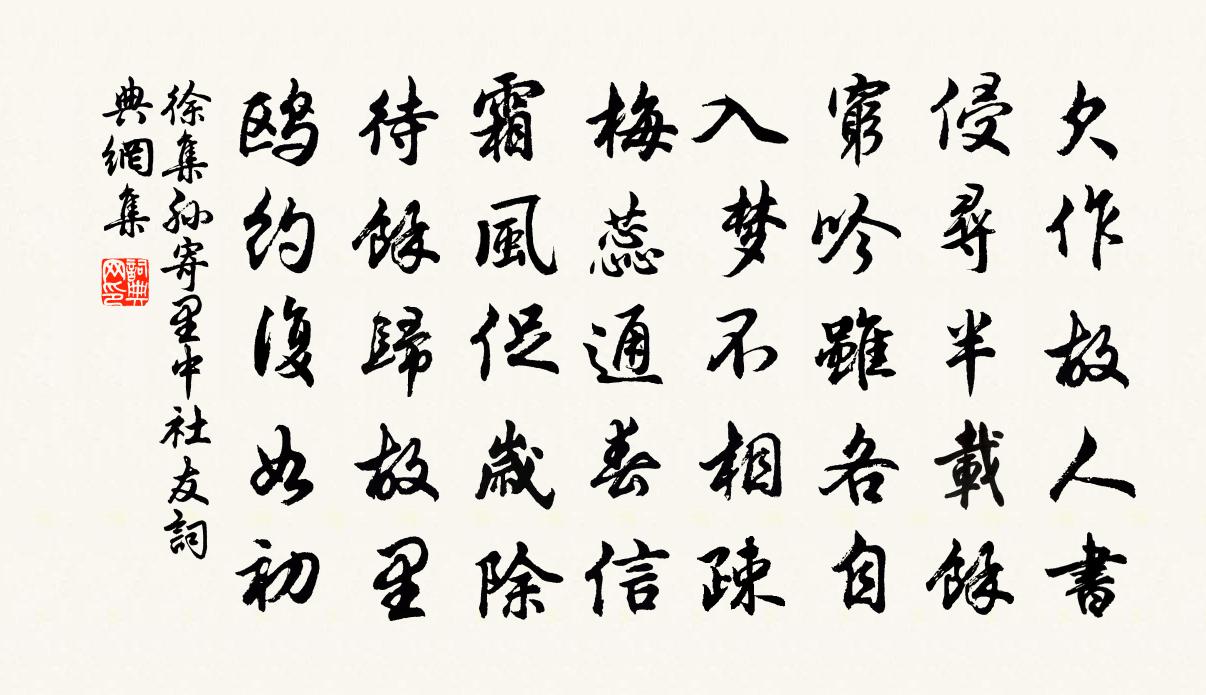 欠作故人書
侵尋半載餘
窮吟雖各自
入梦不相疎
梅蕊通春信
霜風促歲除
待餘歸故里
鸥约復如初
徐集孙寄里中社友詞
典網集
詞典
网印